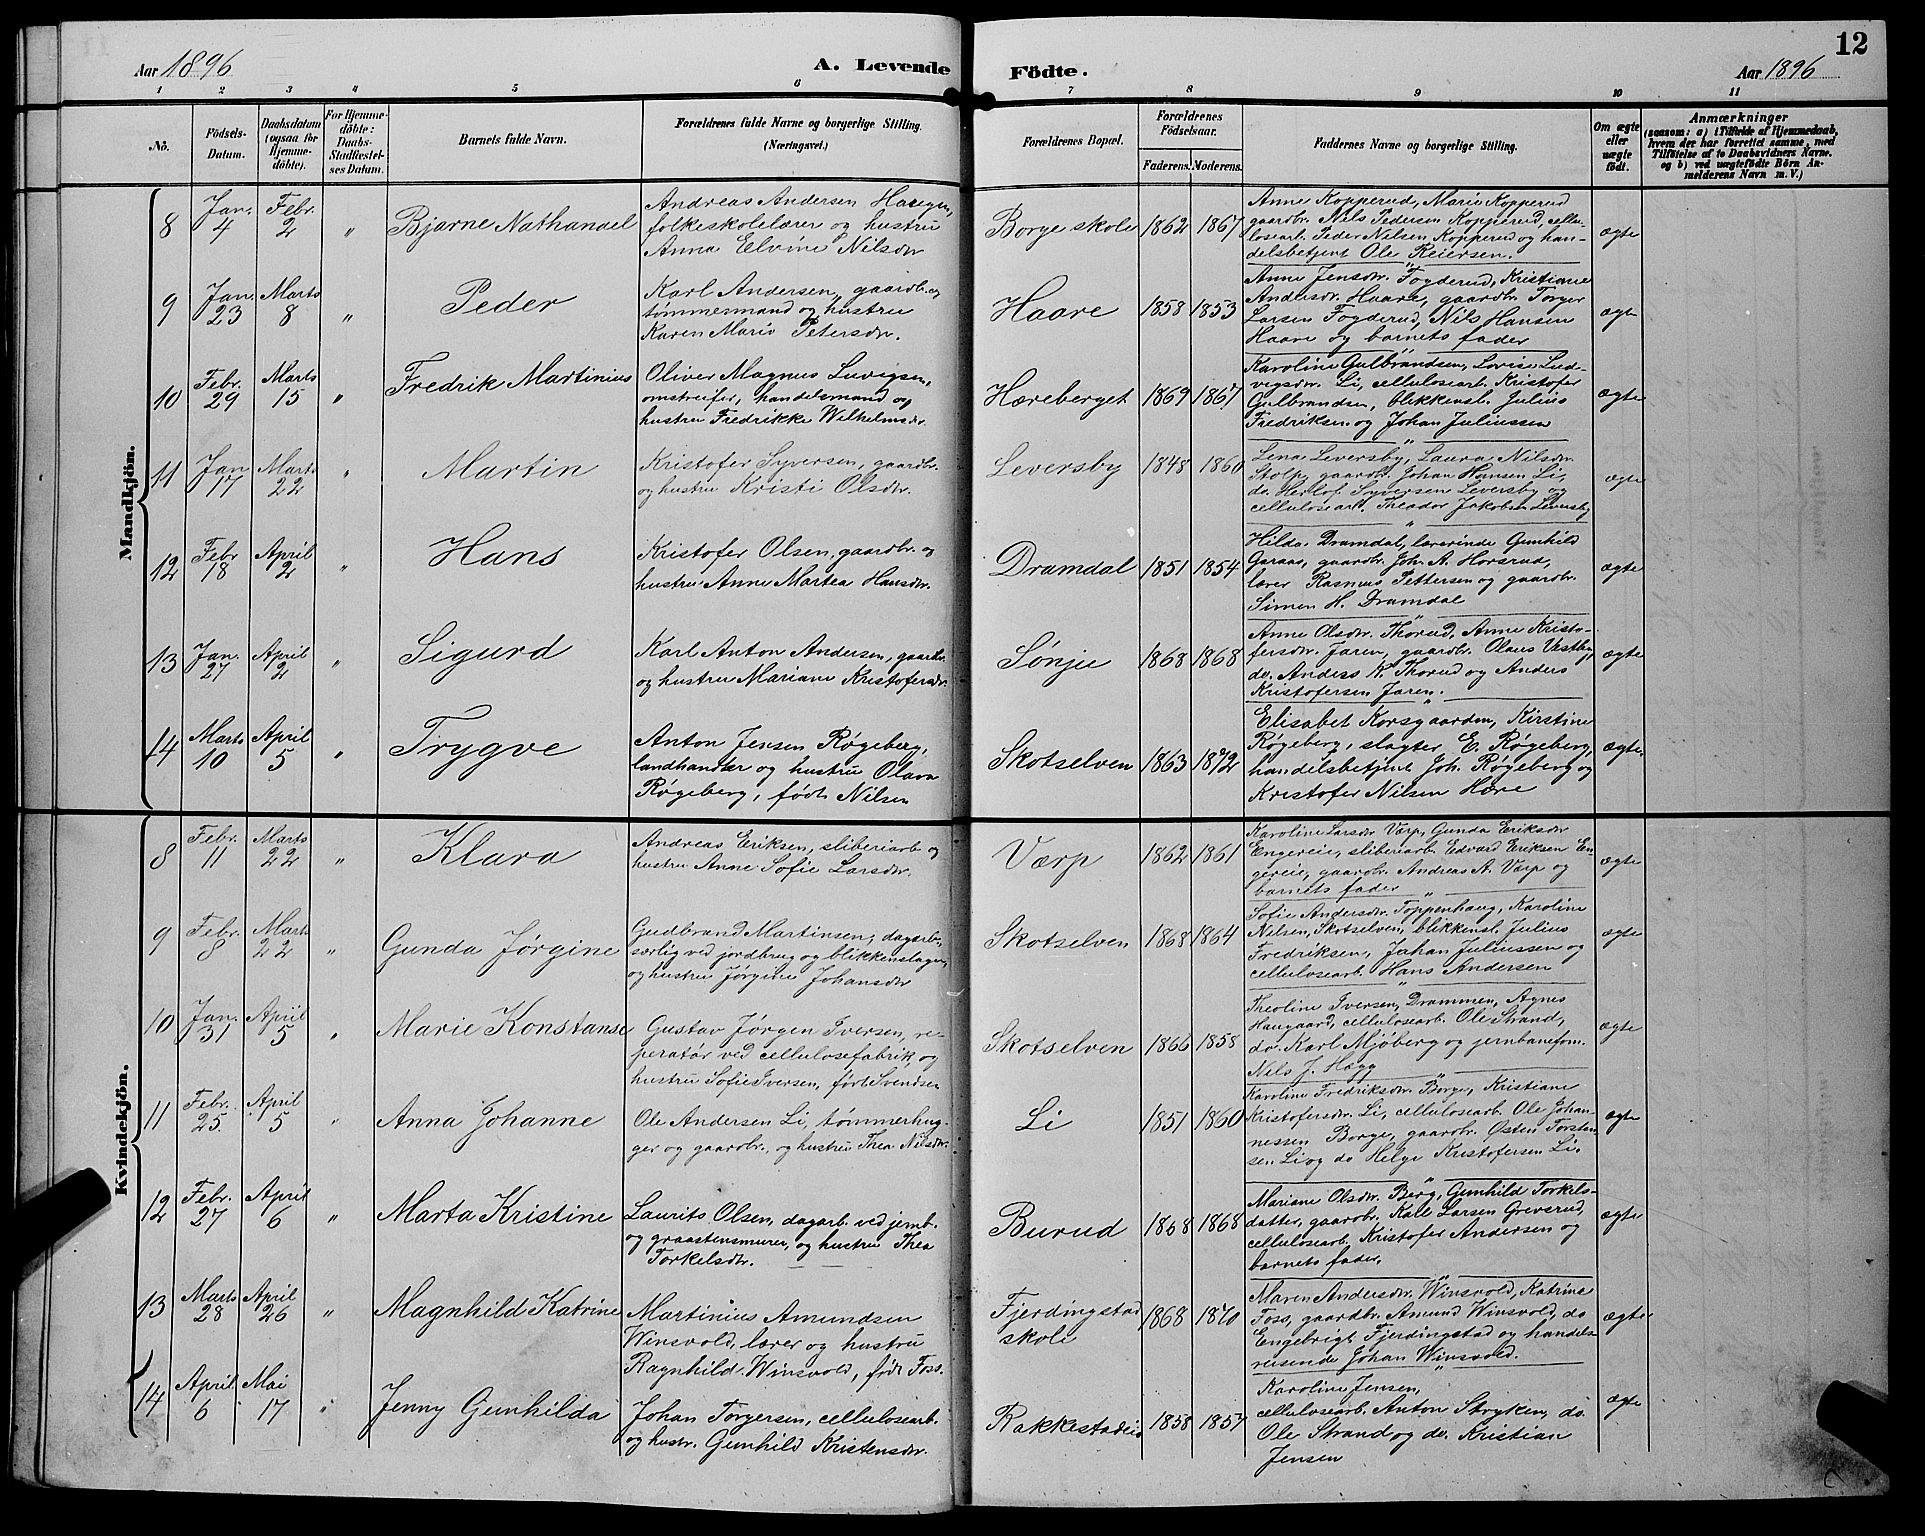 12
Aar 1896
A. Levende
Födte.
Aar 1896
1 2 3 4 5 6 7 8 9 10 11
No.
Födsels-
Datum.
Daabsdatum
(ogsaa for
Hjemme-
döbte).
For Hjemme-
döbte:
Daabs-
Stadfæstel-
ses Datum.
Barnets fulde Navn.
Forældrenes fulde Navne og borgerlige Stilling.
(Næringsvei.)
Forældrenes Bopæl.
Forældrenes
Födselsaar.
Faderens.
Moderens.
Faddernes Navne og borgerlige Stilling.
Om ægte
eller
uægte
födt.
Anmærkninger
(saasom: a) i Tilfælde af Hjemmedaab,
hvem der har forrettet samme, med
Tilföielse af to Daabsvidners Navne,
og b) ved uægtefödte Börn An-
melderens Navn m. V.)
Mandkjön.
8
Jan.
4
Febr.
2
"
Bjarne Nathanael
Andreas Andersen
folkeskolelærer og hustru
Anna Elvine Nilsdr
Borge skole
1862
1867
Anne Kopperud, Marie Kopperud
gaardbr. Nils Pedersen Kopperud, cellu-
losearb. Peder Nilsen Kopperud og han-
delsbetjent Ole Reiersen.
ægte
9
Jan.
23
Marts
8
"
Peder
Karl Andersen, gaardbr. og
tømmermand og hustru
Karen Marie Petersdr.
Haare
1858
1853
Anne Jensdr. Fogderud, Kristiane
Andersdr. Haare, gaardbr. Torger
Larsen Fogderud, Nils Hansen
Haare og barnets fader
ægte
10
Febr.
29
Marts
15
"
Fredrik Martinius
Oliver Magnus Luvigsen,
omstreifer, handelsmand og
hustru Fredrikke Wilhelmsdr.
Hæreberget
1869
1867
Karoline Gulbrandsen, Lovise Lud-
vigsdr. Li, cellulosearb. Kristofer
Gulbrandsen, blikkensl. Julius
Fredriksen og Johan Juliussen
ægte
11
Jan.
17
Marts
22
"
Martin
Kristofer Syversen, gaardbr.
og hustru Kristi Olsdr.
Leversby
1848
1860
Lena Leversby, Laura Nilsdr.
Stolp, gaardbr. Johan Hansen Li,
do. Herlof Syversen Leversby og
cellulosearb. Theodor Jakobsen Leversby
ægte
12
Febr
18
April
2
"
Hans
Kristofer Olsen, gaardbr. og
hustru Anne Martea Hansdr.
Dramdal
1851
1854
Hilda Dramdal, lærerinde Gunhild
Garaas, gaardbr. Joh. A. Horsrud,
lærer Rasmus Pettersen og gaardbr.
Simen H. Dramdal
ægte
13
Jan.
27
April
2
"
Sigurd
Karl Anton Andersen, gaardbr.
og hustru Mariane Kristofersdr.
Sønju
1868
1868
Anne Olsdr. Thorud, Anne Kristo-
fersdr. Jaren, gaardbr. Olaus Vestby,
do. Anders K. Thorud og Anders
Kristofersen Jaren.
ægte
14
Marts
10
April
5
"
Trygve
Anton Jensen Røgeberg,
landhandler og hustru Olava
Røgeberg, født Nilsen
Skotselven
1863
1872
Elisabet Korsgaarden, Kirstine
Røgeberg, slagter E. Røgeberg,
handelsbetjent Joh. Røgeberg og
Kristofer Nilsen Hære
ægte
Kvindekjön.
8
Febr.
11
Marts
22
"
Klara
Andreas Eriksen, sliberiarb. og
hustru Anne Sofie Larsdr.
Værp
1862
1861
Karoline Larsdr Værp, Gunda Eriksdr
Engereie, sliberiarb. Edvard Eriksen En-
gereie, gaardbr. Andreas A. Værp og
barnets fader
ægte
9
Febr.
8
Mart.
22
"
Gunda Jørgine
Gudbrand Martinsen, dagarb.,
særlig ved jordbrug og blikkenslager,
og hustru Jørgine Johansdr
Skotselven
1868
1864
Sofie Andersdr. Toppenhaug, Karoline
Nilsen, Skotselven, blikkensl. Julius
Fredriksen, Johan Juliussen og
cellulosearb. Hans Andersen
ægte
10
Jan.
31
April
5
"
Marie Konstanse
Gustav Jørgen Iversen, re-
peratør ved cellulosefabrik, og
hustru Sofie Iversen, født Svendsen
Skotselven
1866
1858
Theoline Iversen, Drammen, Agnes
Haugaard, cellulosearb. Ole Strand,
do. Karl Mjøberg og jernbaneform.
Nils J. Hægg
ægte
11
Febr.
25
April
5
"
Anna Johanne
Ole Andersen Li, tømmerhug-
ger og gaardbr., og hustru Thea Nilsdr.
Li
1851
1860
Karoline Fredriksdr. Borge, Kristiane
Kristofersdr. Li, cellulosearb. Ole Johan-
nessen Borge, gaardbr. Østen Torsten-
sen Li og do Helge Kristofersen Li.
ægte
12
Febr.
27
April
6
"
Marta Kristine
Laurits Olsen, dagarb. ved jernb.
og graastensmurer, og hustru Thea
Torkelsdr.
Burud
1868
1868
Mariane Olsdr. Berg, Gunhild Torkels-
datter, gaardbr. Kalle Larsen Grevsrud,
cellulosearb. Kristofer Andersen og
barnets fader.
ægte
13
Marts
28
April
26
"
Magnhild Katrine
Martinius Amundsen
Winsvold, lærer og hustru
Ragnhild Winsvold, født Foss.
Fjerdingstad
skole
1868
1870
Maren Andersdr. Winsvold, Katrine
Foss, gaardbr. Amund Winsvold, do
Engebrigt Fjerdingstad og handels-
reisende Johan Winsvold.
ægte
14
April
6
Mai
17
"
Jenny Gunhilda
Johan Torgersen, cellulosearb.
og hustr. Gunhild Kristensdr.
Rakkestadeie
1858
1857
Karoline Jensen,
cellulosearb. Anton Stryken, do.
Ole Strand og do. Kristian
Jensen
ægte